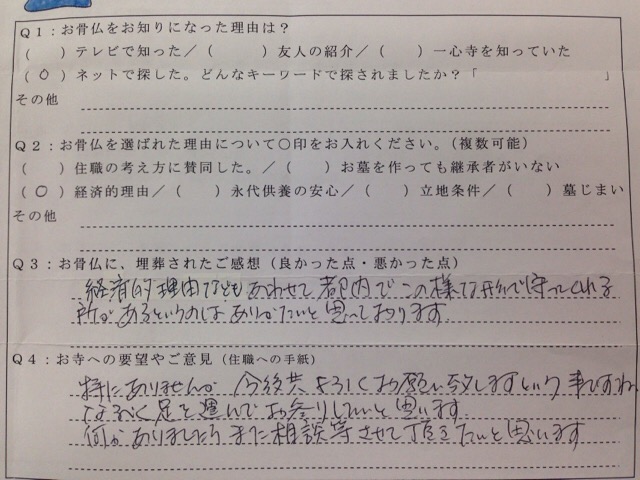 Q1：お骨仏をお知りになった理由は？
（　）テレビで知った／（　　）友人の紹介／（　）一心寺を知っていた
（○）ネットで探した。どんなキーワードで探されましたか？「　　　　　」
その他
Q2：お骨仏を選ばれた理由について○印をお入れください。（複数可能）
（　）住職の考え方に賛同した。／（　）お墓を作っても継承者がいない
（○）経済的理由／（　）永代供養の安心／（　）立地条件／（　）墓じまい
その他
Q3：お骨仏に、埋葬されたご感想（良かった点・悪かった点）
経済的理由などもあわせて都内でこの様な形で守ってくれる
所があるというのはありがたいと思っております
Q4：お寺への要望やご意見（住職への手紙）
特にありませんが 今後共よろしくお願い致しますという事ですね
なるべく足を運んでお参りしたいと思います
何かありましたらまた相談等させて頂きたいと思います